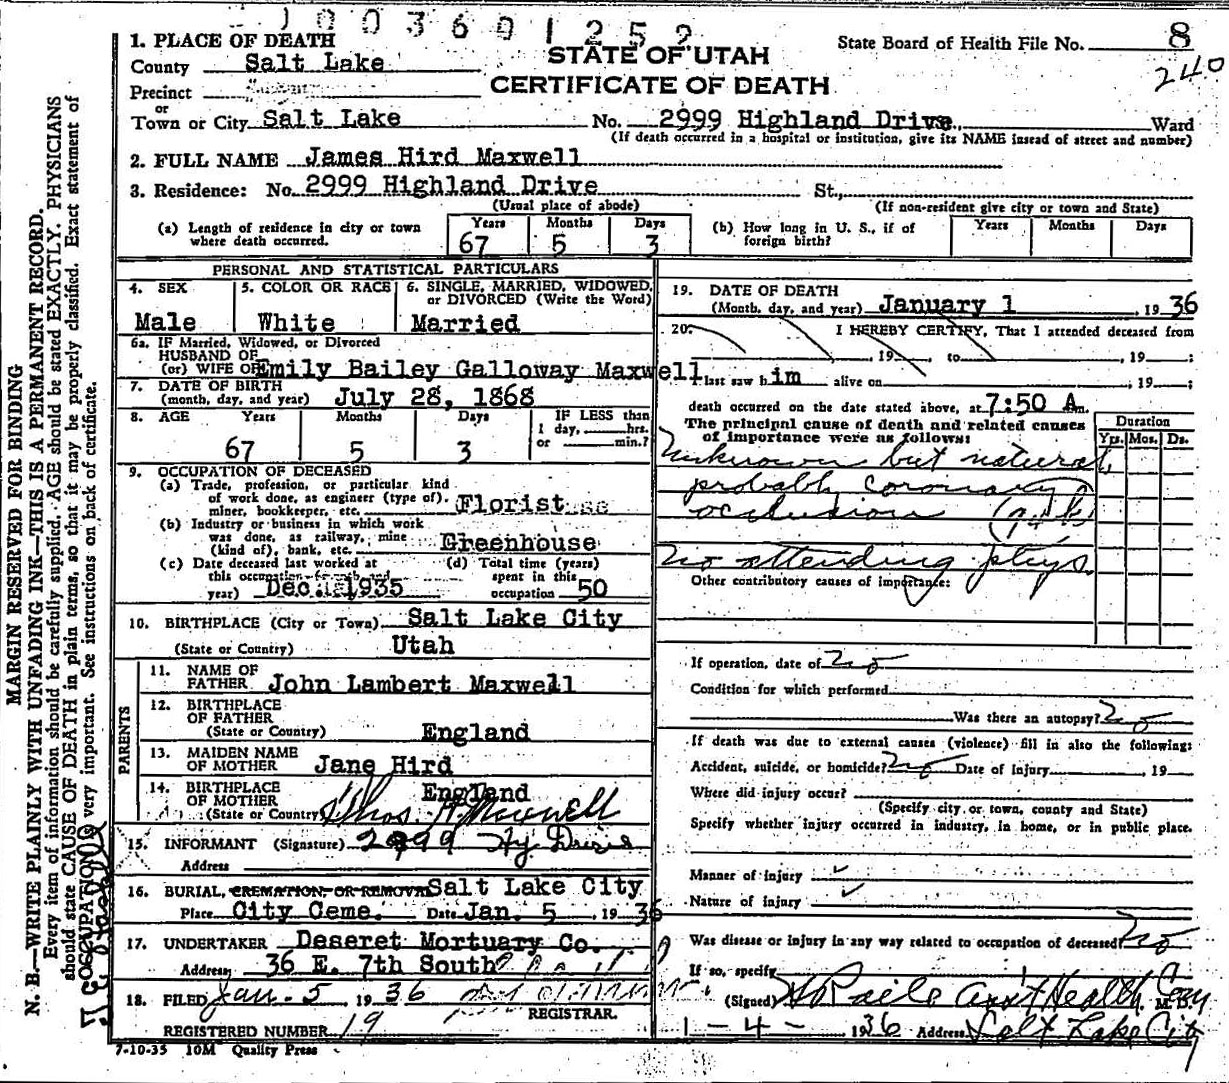 1003601252
1. PLACE OF DEATH
STATE OF UTAH
CERTIFICATE OF DEATH
State Board of Health File No. 8
240
County Salt Lake
Precinct
or
Town or City Salt Lake No. 2999 Highland Drive, Ward
(If death occurred in a hospital or institution, give its NAME insead of street and number)
2. FULL NAME James Hird Maxwell
3. Residence: No. 2999 Highland Drive St.,
(Usual place of abode) (If non-resident give city or town and State)
(a) Length of residence in city or town where death occurred. Years 67 Months 5 Days 3
(b) How long in U. S., if of foreign birth? Years Months Days
PERSONAL AND STATISTICAL PARTICULARS
4. SEX Male
5. COLOR OR RACE White
6. SINGLE, MARRIED, WIDOWED, or DIVORCED (Write the Word) Married
6a. IF Married, Widowed, or Divorced
HUSBAND OF
(or) WIFE OF Emily Bailey Galloway Maxwell
7. DATE OF BIRTH
(month, day, and year) July 28, 1868
8. AGE Years 67 Months 5 Days 3
IF LESS than
1 day, hrs.
or min.?
9. OCCUPATION OF DECEASED
(a) Trade, profession, or particular kind
of work done, as engineer (type of).
miner, bookkeeper, etc. Florist
(b) Industry or business in which work
was done, as railway, mine
(kind of), bank, etc. Greenhouse
(c) Date deceased last worked at
this occupation
year) Dec. 1935
(d) Total time (years)
spent in this
occupation 50
10. BIRTHPLACE (City or Town) Salt Lake City
(State or Country) Utah
PARENTS
11. NAME OF
FATHER John Lambert Maxwell
12. BIRTHPLACE
OF FATHER
(State or Country) England
13. MAIDEN NAME
OF MOTHER Jane Hird
14. BIRTHPLACE
OF MOTHER England
(State or Country) Thos H Maxwell
15. INFORMANT (Signature) 2999 Hy Drive
Address
16. BURIAL, CREMATION, OR REMOVAL Salt Lake City
Place City Ceme. Date Jan. 5, 1936
17. UNDERTAKER Deseret Mortuary Co.
Address 36 E. 7th South
18. FILED Jan. 5, 1936
REGISTRAR.
REGISTERED NUMBER 19
7-10-35 10M Quality Press
19. DATE OF DEATH
(Month, day, and year) January 1, 1936
20. I HEREBY CERTIFY, That I attended deceased from
, 19 , to , 19 ;
I last saw him alive on , 19 ;
death occurred on the date stated above, at 7:50 A m.
The principal cause of death and related causes
of importance were as follows:
Duration
Yrs. Mos. Ds.
Unknown but natural
probably coronary
occlusion
No attending phys.
Other contributory causes of importance:
If operation, date of no
Condition for which performed
Was there an autopsy? no
If death was due to external causes (violence) fill in also the following:
Accident, suicide, or homicide? no Date of injury , 19
Where did injury occur?
(Specify city or town, county and State)
Specify whether injury occurred in industry, in home, or in public place.
Manner of injury
Nature of injury
Was disease or injury in any way related to occupation of deceased? no
If so, specify
(Signed) Health M. D.
1-4- 1936 Address Salt Lake City
MARGIN RESERVED FOR BINDING
N. B.—WRITE PLAINLY WITH UNFADING INK—THIS IS A PERMANENT RECORD.
Every item of information should be carefully supplied. AGE should be stated EXACTLY. PHYSICIANS
should state CAUSE OF DEATH in plain terms, so that it may be properly classified. Exact statement of
OCCUPATION is very important. See instructions on back of certificate.